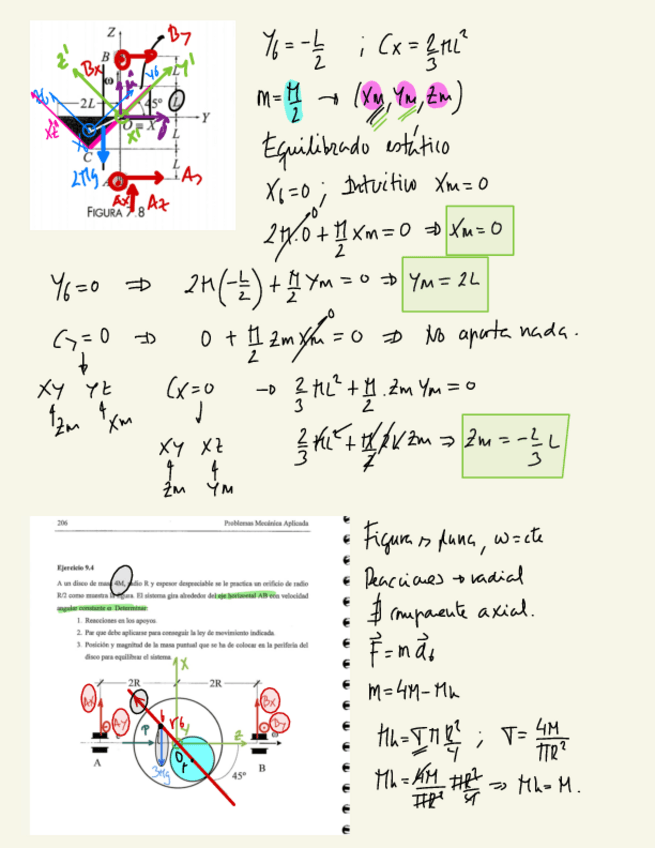 Y6 = -L/2 ; Cx = 2/3 ML²
m = M/2 → (Xm, Ym, Zm)
Equilibrado estático
X6=0 ; Intuitivo Xm=0
2M·0 + M/2 Xm = 0 ⇒ Xm=0
Y6=0 ⇒ 2M(-L/2) + M/2 Ym = 0 ⇒ Ym = 2L
Cy=0 ⇒ 0 + M/2 Zm Xm = 0 ⇒ No aporta nada.
XY YZ
Zm Xm
Cx=0 → 2/3 ML² + M/2 · Zm Ym = 0
XY XZ
Zm Ym
2/3 ML² + M/2 2L Zm ⇒ Zm = -2/3 L
Z
B
By
Bx
Z'
Y'
ω
45°
L
2L
Y
O
X
L
C
L
2Mg
Ay
Ax
Az
FIGURA 7.8
206 Problemas Mecánica Aplicada
Ejercicio 9.4
A un disco de masa 4M, radio R y espesor despreciable se le practica un orificio de radio
R/2 como muestra la figura. El sistema gira alrededor del eje horizontal AB con velocidad
angular constante ω. Determinar:
1. Reacciones en los apoyos.
2. Par que debe aplicarse para conseguir la ley de movimiento indicada.
3. Posición y magnitud de la masa puntual que se ha de colocar en la periferia del
disco para equilibrar el sistema.
X
2R 2R
Ax
Ay
Bx
By
Z
ω
3Mg
A
B
45°
Figura plana, ω=cte
Reacciones → radial
∄ componente axial.
F = m a6
m = 4M - Mh
Mh = σ π R²/4 ; σ = 4M/πR²
Mh = 4M/πR² πR²/4 ⇒ Mh = M.